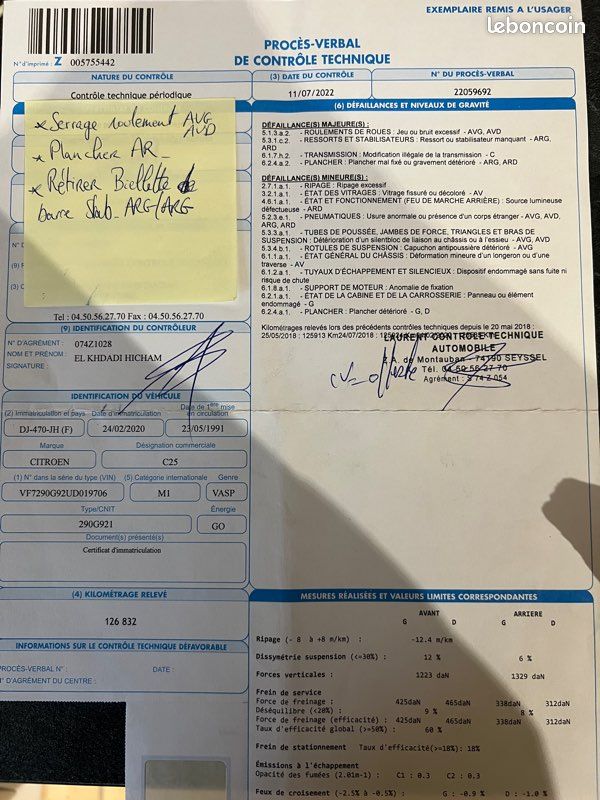 EXEMPLAIRE REMIS A L'USAGER
leboncoin
N° d'imprimé : Z 005755442
PROCÈS-VERBAL
DE CONTRÔLE TECHNIQUE
NATURE DU CONTRÔLE
(3) DATE DU CONTRÔLE
N° DU PROCÈS-VERBAL
Contrôle technique périodique
11/07/2022
22059692
* Serrage roulement AVG
AVD
* Plancher AR_
* Rétirer Biellette de
barre Stab_ ARG/ARG
Tel : 04.50.56.27.70 Fax : 04.50.56.27.70
(9) IDENTIFICATION DU CONTRÔLEUR
N° D'AGRÉMENT : 074Z1028
NOM ET PRÉNOM : EL KHDADI HICHAM
SIGNATURE :
(6) DÉFAILLANCES ET NIVEAUX DE GRAVITÉ
DÉFAILLANCE(S) MAJEURE(S) :
5.1.3.a.2. - ROULEMENTS DE ROUES : Jeu ou bruit excessif - AVG, AVD
5.3.1.c.2. - RESSORTS ET STABILISATEURS : Ressort ou stabilisateur manquant - ARG,
ARD
6.1.7.h.2. - TRANSMISSION : Modification illégale de la transmission - C
6.2.4.a.2. - PLANCHER : Plancher mal fixé ou gravement détérioré - ARG, ARD
DÉFAILLANCE(S) MINEURE(S) :
2.7.1.a.1. - RIPAGE : Ripage excessif
3.2.1.a.1. - ÉTAT DES VITRAGES : Vitrage fissuré ou décoloré - AV
4.6.1.a.1. - ÉTAT ET FONCTIONNEMENT (FEU DE MARCHE ARRIÈRE) : Source lumineuse
défectueuse - ARD
5.2.3.e.1. - PNEUMATIQUES : Usure anormale ou présence d'un corps étranger - AVG, AVD,
ARG, ARD
5.3.3.a.1. - TUBES DE POUSSÉE, JAMBES DE FORCE, TRIANGLES ET BRAS DE
SUSPENSION : Détérioration d'un silentbloc de liaison au châssis ou à l'essieu - AVG, AVD
5.3.4.b.1. - ROTULES DE SUSPENSION : Capuchon antipoussière détérioré - AVG
6.1.1.a.1. - ÉTAT GÉNÉRAL DU CHÂSSIS : Déformation mineure d'un longeron ou d'une
traverse - AV
6.1.2.a.1. - TUYAUX D'ÉCHAPPEMENT ET SILENCIEUX : Dispositif endommagé sans fuite ni
risque de chute
6.1.8.a.1. - SUPPORT DE MOTEUR : Anomalie de fixation
6.2.1.a.1. - ÉTAT DE LA CABINE ET DE LA CARROSSERIE : Panneau ou élément
endommagé - G
6.2.4.a.1. - PLANCHER : Plancher détérioré - G, D
Kilométrages relevés lors des précédents contrôles techniques depuis le 20 mai 2018 :
25/05/2018 : 125913 Km
LAURENT CONTROLE TECHNIQUE
AUTOMOBILE
Z.A. de Montauban - 74190 SEYSSEL
Tél. 04 50 56 27 70
Agrément : S 74 Z 054
IDENTIFICATION DU VÉHICULE
(2) Immatriculation et pays
Date d'immatriculation
Date de 1ère mise
en circulation
DJ-470-JH (F)
24/02/2020
23/05/1991
Marque
Désignation commerciale
CITROEN
C25
(1) N° dans la série du type (VIN)
(5) Catégorie internationale
Genre
VF7290G92UD019706
M1
VASP
Type/CNIT
Énergie
290G921
GO
Document(s) présenté(s)
Certificat d'immatriculation
(4) KILOMÉTRAGE RELEVÉ
126 832
INFORMATIONS SUR LE CONTRÔLE TECHNIQUE DÉFAVORABLE
PROCÈS-VERBAL N° :
DATE :
N° D'AGRÉMENT DU CENTRE :
MESURES RÉALISÉES ET VALEURS LIMITES CORRESPONDANTES
AVANT
ARRIERE
G D G D
Ripage (- 8 à +8 m/km) : -12.4 m/km
Dissymétrie suspension (<=30%) : 12 % 6 %
Forces verticales : 1223 daN 1329 daN
Frein de service
Force de freinage : 425daN 465daN 338daN 312daN
Déséquilibre (<20%) : 9 % 8 %
Force de freinage (efficacité) : 425daN 465daN 338daN 312daN
Taux d'efficacité global (>=50%) : 60 %
Frein de stationnement Taux d'efficacité(>=18%): 18%
Émissions à l'échappement
Opacité des fumées (2.01m-1) : C1 : 0.3 C2 : 0.3
Feux de croisement (-2.5% à -0.5%) : G : -0.9 % D : -1.0 %